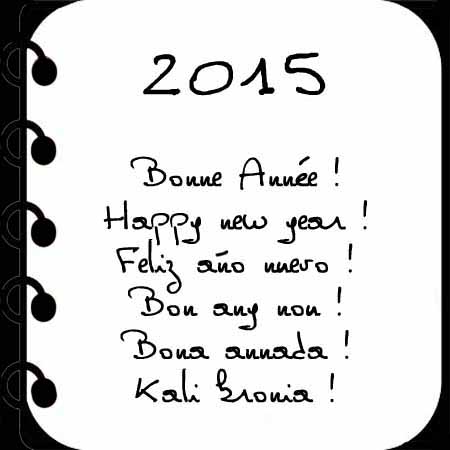 2015
Bonne Année !
Happy new year !
Feliz año nuevo !
Bon any nou !
Bona annada !
Kali Xronia !